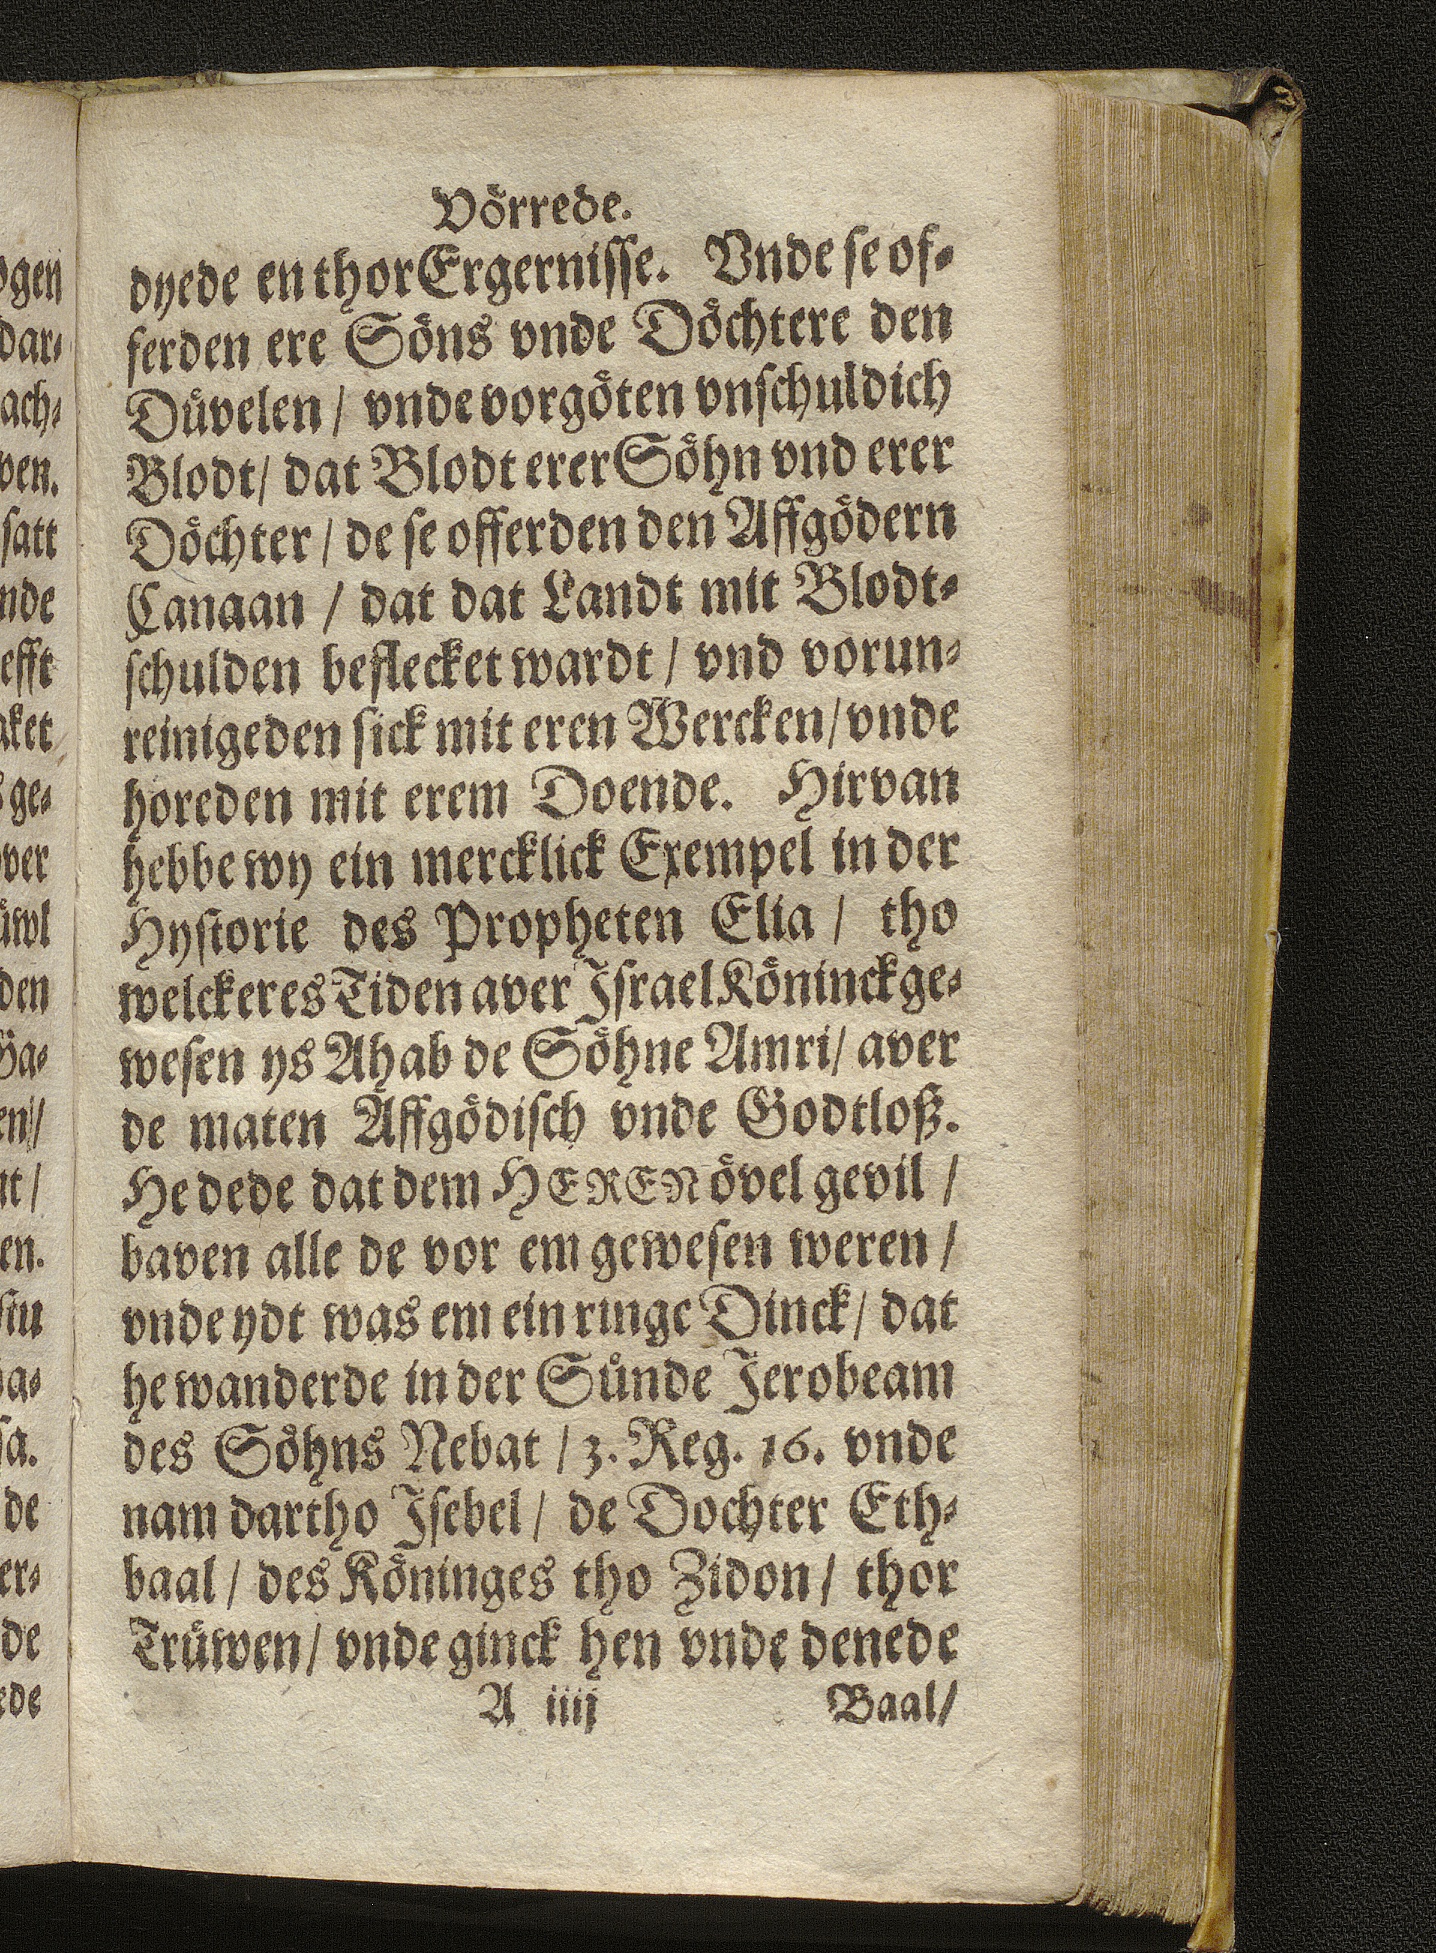 Vörrede.
dyede en thor Ergernisse. Vnde se of⸗
ferden ere Söns vnde Döchtere den
Düvelen / vnde vorgöten vnschuldich
Blodt / dat Blodt erer Söhn vnd erer
Döchter / de se offerden den Affgödern
Canaan / dat dat Landt mit Blodt⸗
schulden beflecket wardt / vnd vorun⸗
reinigeden sick mit eren Wercken / vnde
horeden mit erem Doende. Hirvan
hebbe wy ein mercklick Exempel in der
Hystorie des Propheten Elia / tho
welckeres Tiden aver Israel Köninck ge⸗
wesen ys Ahab de Söhne Amri / aver
de maten Affgödisch vnde Godtloß.
He dede dat dem HEREN övel gevil /
baven alle de vor em gewesen weren /
vnde ydt was em ein ringe Dinck / dat
he wanderde in der Sünde Jerobeam
des Söhns Nebat / 3. Reg. 16. vnde
nam dartho Isebel / de Dochter Eth⸗
baal / des Köninges tho Zidon / thor
Trüwen / vnde ginck hen vnde denede
A iiij Baal /